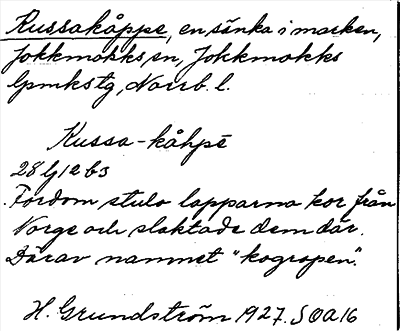 Kussakåppe, en sänka i marken,
Jokkmokks sn, Jokkmokks
lpmkstg, Norrb. l.
Kussa-kåhpē
28 lj 12 b3
Fordom stulo lapparna kor från
Norge och slaktade dem där.
Därav namnet "kogropen".
H. Grundström 1927. SOA 16